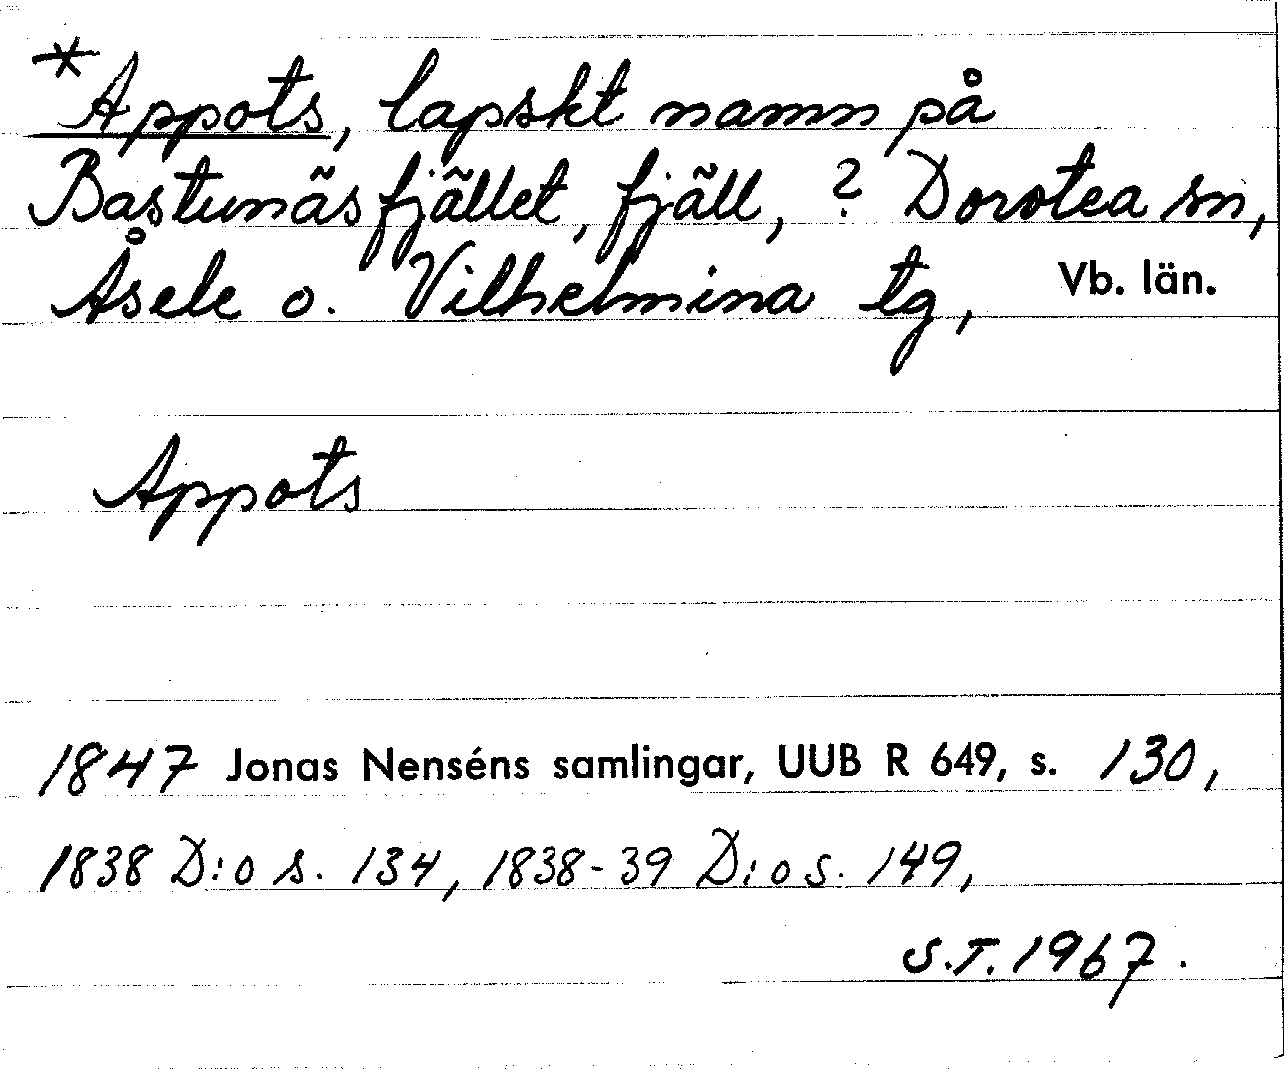 *Appots, lapskt namn på
Bastunäsfjället, fjäll, ? Dorotea sn,
Åsele o. Vilhelmina tg, Vb. län.
Appots
1847 Jonas Nenséns samlingar, UUB R 649, s. 130,
1838 D:o s. 134, 1838-39 D:o s. 149,
S.T. 1967.